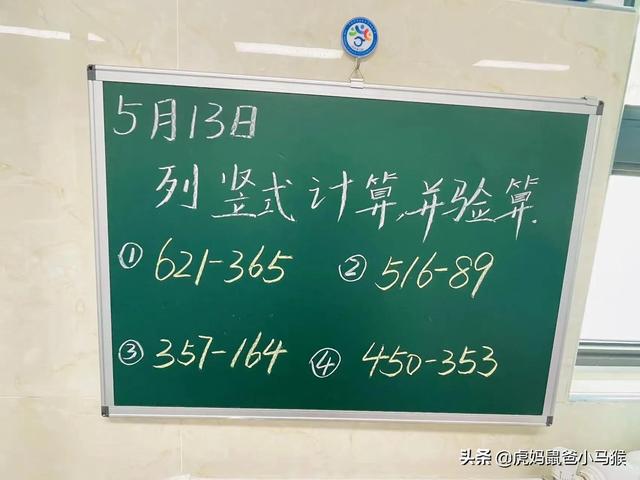 5月13日
列竖式计算,并验算.
① 621-365 ② 516-89
③ 357-164 ④ 450-353
头条 @虎妈鼠爸小马猴